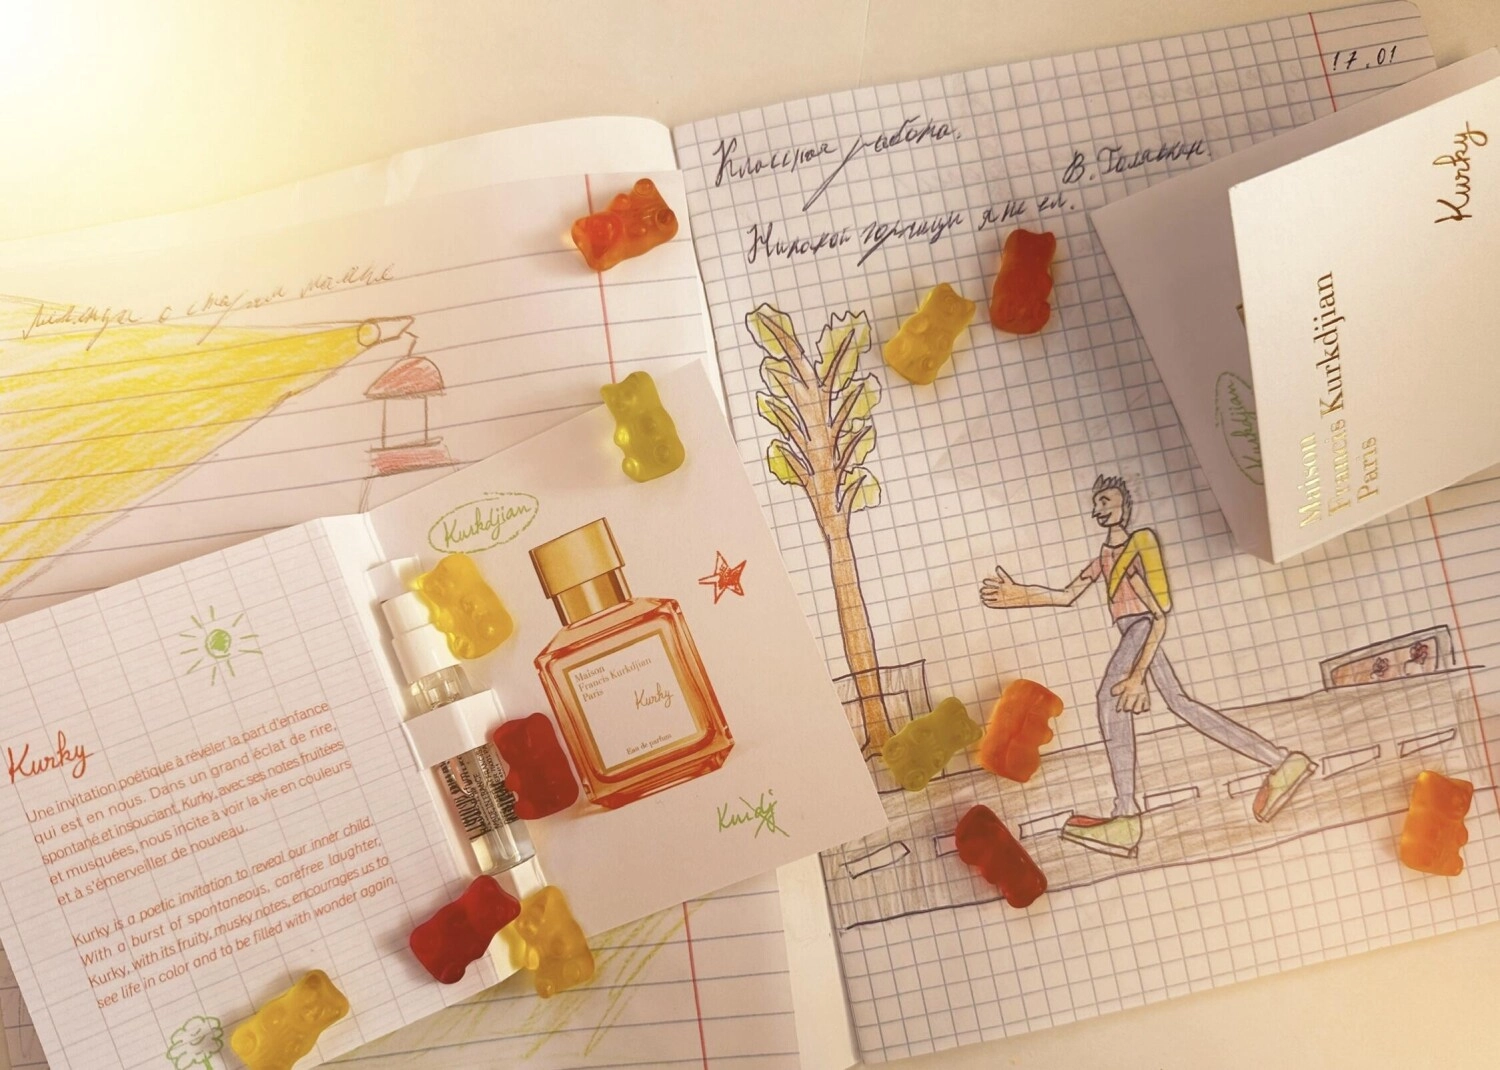 17.01
Классная работа.
В. Голявкин.
Никакой горчицы я не ел.
Легенда о старом маяке
Kurkdjian
Maison
Francis Kurkdjian
Paris
Kurky
Eau de parfum
Kurdj
Kurky
Une invitation poétique à révéler la part d'enfance
qui est en nous. Dans un grand éclat de rire,
spontané et insouciant, Kurky, avec ses notes fruitées
et musquées, nous incite à voir la vie en couleurs
et à s'émerveiller de nouveau.
Kurky is a poetic invitation to reveal our inner child.
With a burst of spontaneous, carefree laughter,
Kurky, with its fruity, musky notes, encourages us to
see life in color and to be filled with wonder again.
Kurky
Maison
Francis Kurkdjian
Paris
Kurkdjian